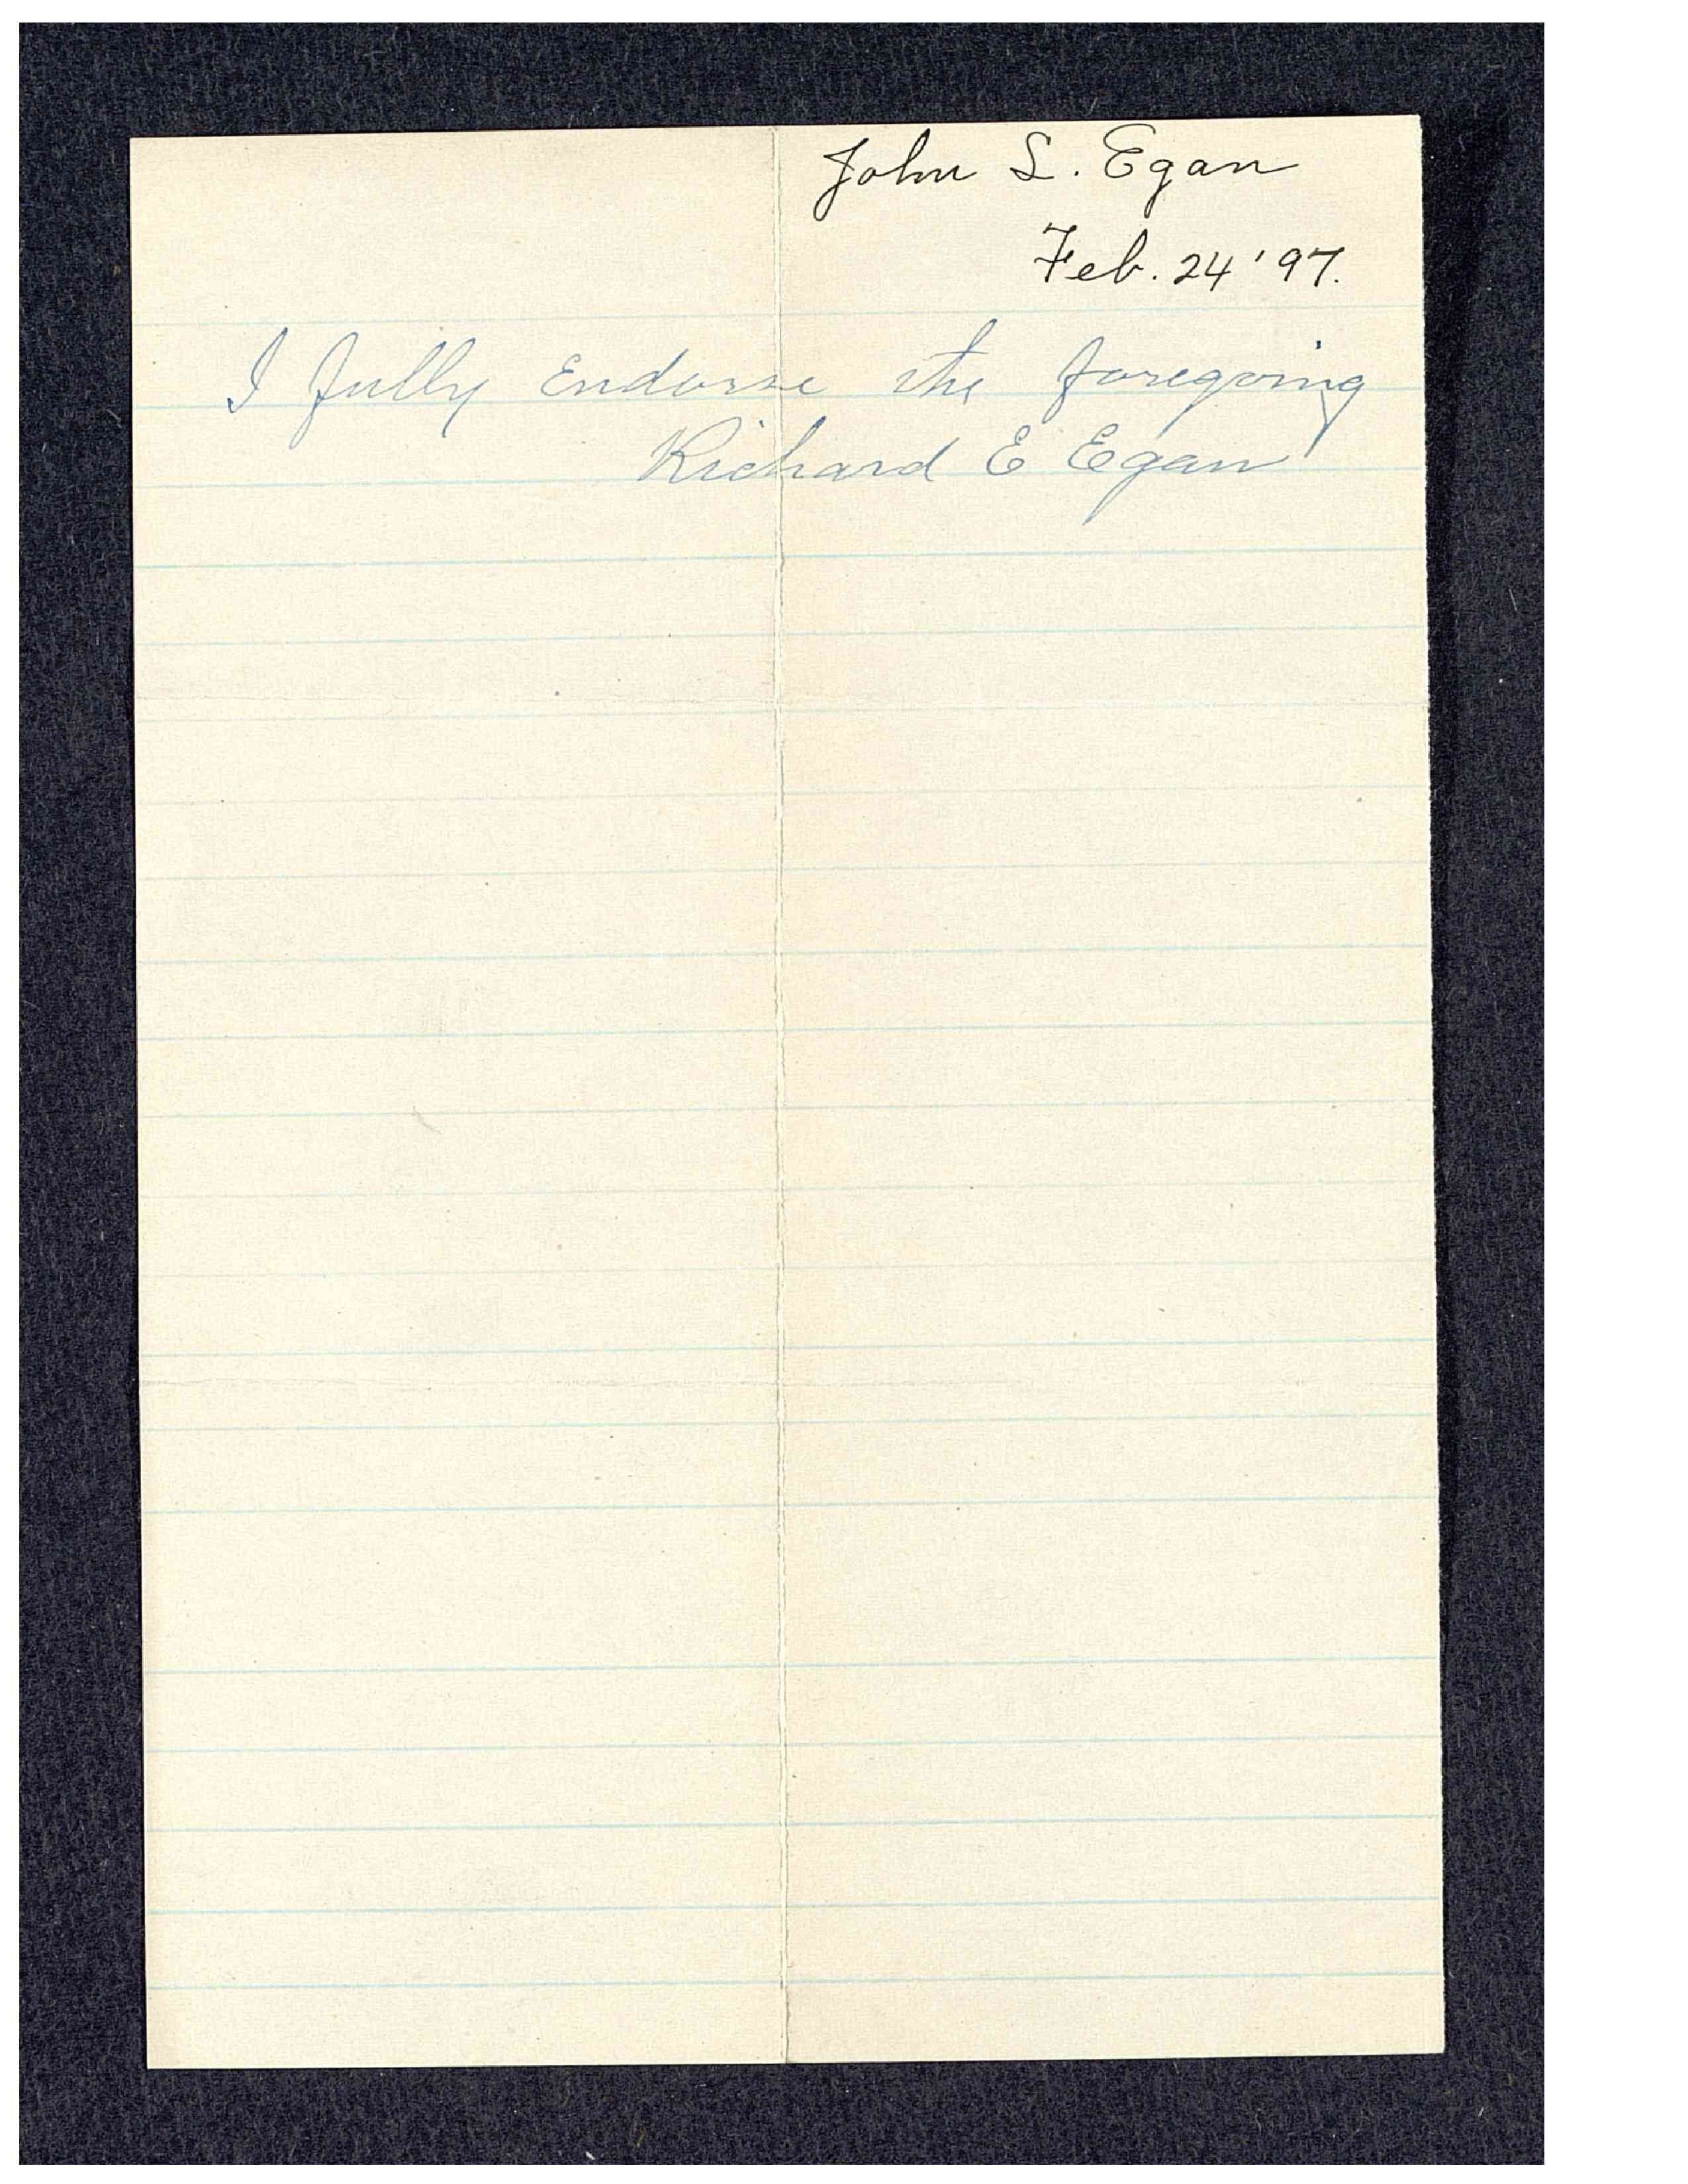 John L. Egan
Feb. 24 '97.
I fully Endorse the foregoing
Richard E Egan